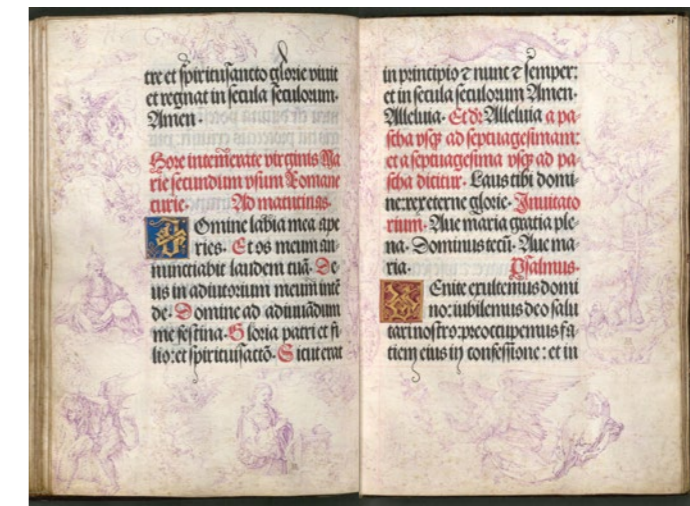 tre et spiritusancto glorie viuit
et regnat in secula seculorum.
Amen.
Hore intemerate virginis Ma
rie secundum vsum Romane
curie. Ad maturinas.
Domine labia mea ape
ries. Et os meum an
nunctiabit laudem tuā. De
us in adiutorium meum intē
de. Domine ad adiuuādum
me festina. Gloria patri et fi
lio: et spirituisactō. Sicut erat
in principio ⁊ nunc ⁊ semper:
et in secula seculorum Amen.
Alleluia. Et dr Alleluia a pa
scha vsq ad septuagesimam:
et a septuagesima vsq ad pa
scha dicitur. Laus tibi domi
ne: rex eterne glorie. Inuitato
rium. Aue maria gratia ple
na. Dominus tecū. Aue ma
ria. Psalmus.
Venite exultemus domi
no: iubilemus deo salu
tari nostro: preoccupemus fa
tiem eius in confessione: et in